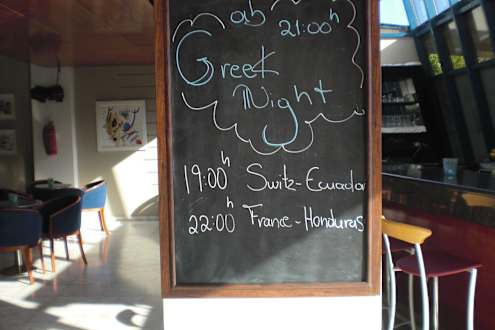 ab 21:00h
Greek
Night
19:00h Switz-Ecuador
22:00h France-Honduras